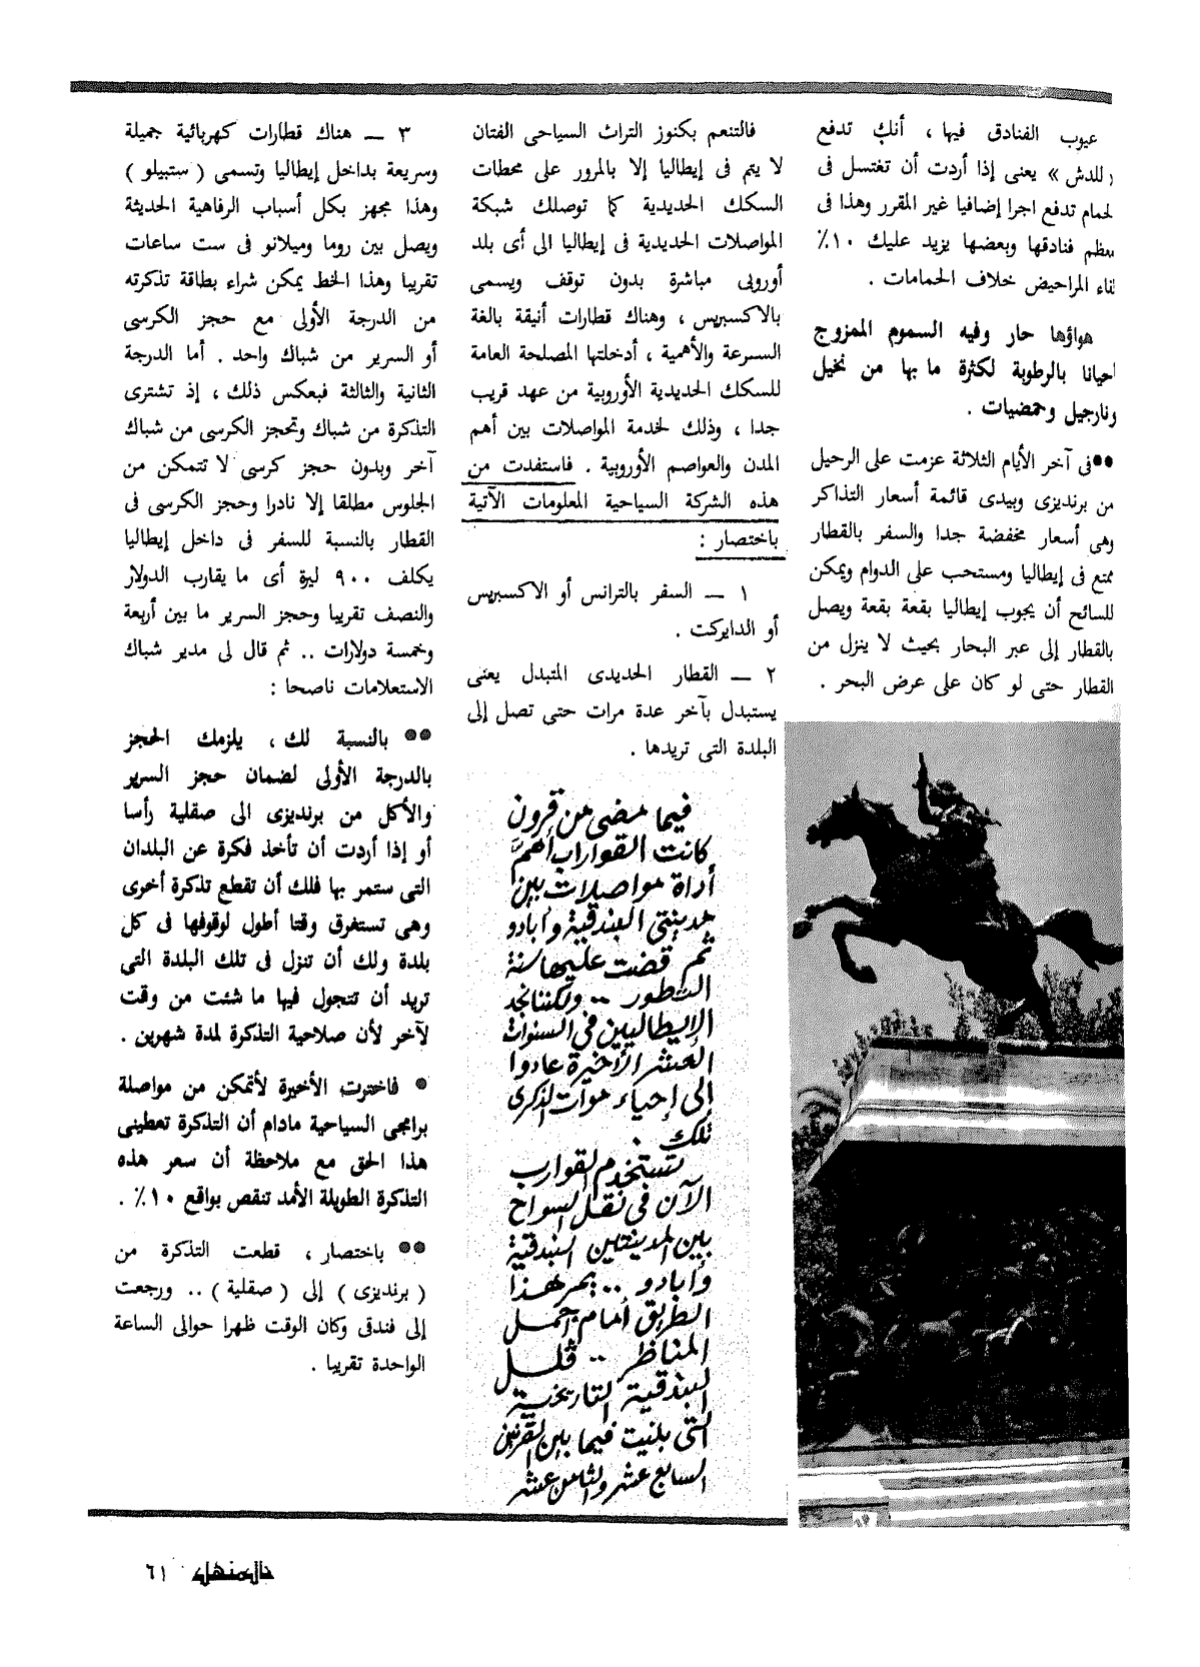 عيوب الفنادق فيها ، أنك تدفع
للدش » يعنى إذا أردت أن تغتسل فى
لحمام تدفع اجرا إضافيا غير المقرر وهذا فى
معظم فنادقها وبعضها يزيد عليك ١٠٪
لقاء المراحيض خلاف الحمامات .
هواؤها حار وفيه السموم الممزوج
احيانا بالرطوبة لكثرة ما بها من نخيل
ونارجيل وحمضيات .
●●فى آخر الأيام الثلاثة عزمت على الرحيل
من برنديزى وبيدى قائمة أسعار التذاكر
وهى أسعار مخفضة جدا والسفر بالقطار
ممتع فى إيطاليا ومستحب على الدوام ويمكن
للسائح أن يجوب إيطاليا بقعة بقعة ويصل
بالقطار إلى عبر البحار بحيث لا ينزل من
القطار حتى لو كان على عرض البحر .
فالتنعم بكنوز التراث السياحى الفتان
لا يتم فى إيطاليا إلا بالمرور على محطات
السكك الحديدية كما توصلك شبكة
المواصلات الحديدية فى إيطاليا الى أى بلد
أوروبى مباشرة بدون توقف ويسمى
بالاكسبريس ، وهناك قطارات أنيقة بالغة
السرعة والأهمية ، أدخلتها المصلحة العامة
للسكك الحديدية الأوروبية من عهد قريب
جدا ، وذلك لخدمة المواصلات بين أهم
المدن والعواصم الأوروبية . فاستفدت من
هذه الشركة السياحية المعلومات الآتية
باختصار :
١ ــ السفر بالترانس أو الاكسبريس
أو الدايركت .
٢ ــ القطار الحديدى المتبدل يعنى
يستبدل بآخر عدة مرات حتى تصل إلى
البلدة التى تريدها .
فيما مضى من قرون
كانت القوارب أهم
أداة مواصلات بين
مدينتى البندقية وابادو
ثم قضت عليها سنة
التطور .. ولكننا نجد
الإيطاليين فى السنوات
العشر الأخيرة عادوا
إلى إحياء موات الذكرى
تلك .
تستخدم القوارب
الآن فى نقل السواح
بين المدينتين البندقية
وابادو .. يمر هذا
الطريق أمام أجمل
المناظر .. فلل
البندقية التاريخية
التى بنيت فيما بين القرنين
السابع عشر والثامن عشر
٣ ــ هناك قطارات كهربائية جميلة
وسريعة بداخل إيطاليا وتسمى ( ستبيلو )
وهذا مجهز بكل أسباب الرفاهية الحديثة
ويصل بين روما وميلانو فى ست ساعات
تقريبا وهذا الخط يمكن شراء بطاقة تذكرته
من الدرجة الأولى مع حجز الكرسى
أو السرير من شباك واحد . أما الدرجة
الثانية والثالثة فبعكس ذلك ، إذ تشترى
التذكرة من شباك وتحجز الكرسى من شباك
آخر وبدون حجز كرسى لا تتمكن من
الجلوس مطلقا إلا نادرا وحجز الكرسى فى
القطار بالنسبة للسفر فى داخل إيطاليا
يكلف ٩٠٠ ليرة أى ما يقارب الدولار
والنصف تقريبا وحجز السرير ما بين أربعة
وخمسة دولارات .. ثم قال لى مدير شباك
الاستعلامات ناصحا :
●● بالنسبة لك ، يلزمك الحجز
بالدرجة الأولى لضمان حجز السرير
والأكل من برنديزى الى صقلية رأسا
أو إذا أردت أن تأخذ فكرة عن البلدان
التى ستمر بها فلك أن تقطع تذكرة أخرى
وهى تستغرق وقتا أطول لوقوفها فى كل
بلدة ولك أن تنزل فى تلك البلدة التى
تريد أن تتجول فيها ما شئت من وقت
لآخر لأن صلاحية التذكرة لمدة شهرين .
● فاخترت الأخيرة لأتمكن من مواصلة
برامجى السياحية مادام أن التذكرة تعطينى
هذا الحق مع ملاحظة أن سعر هذه
التذكرة الطويلة الأمد تنقص بواقع ١٠٪ .
●● باختصار ، قطعت التذكرة من
( برنديزى ) إلى ( صقلية ) .. ورجعت
إلى فندقى وكان الوقت ظهرا حوالى الساعة
الواحدة تقريبا .
المنهل ٦١